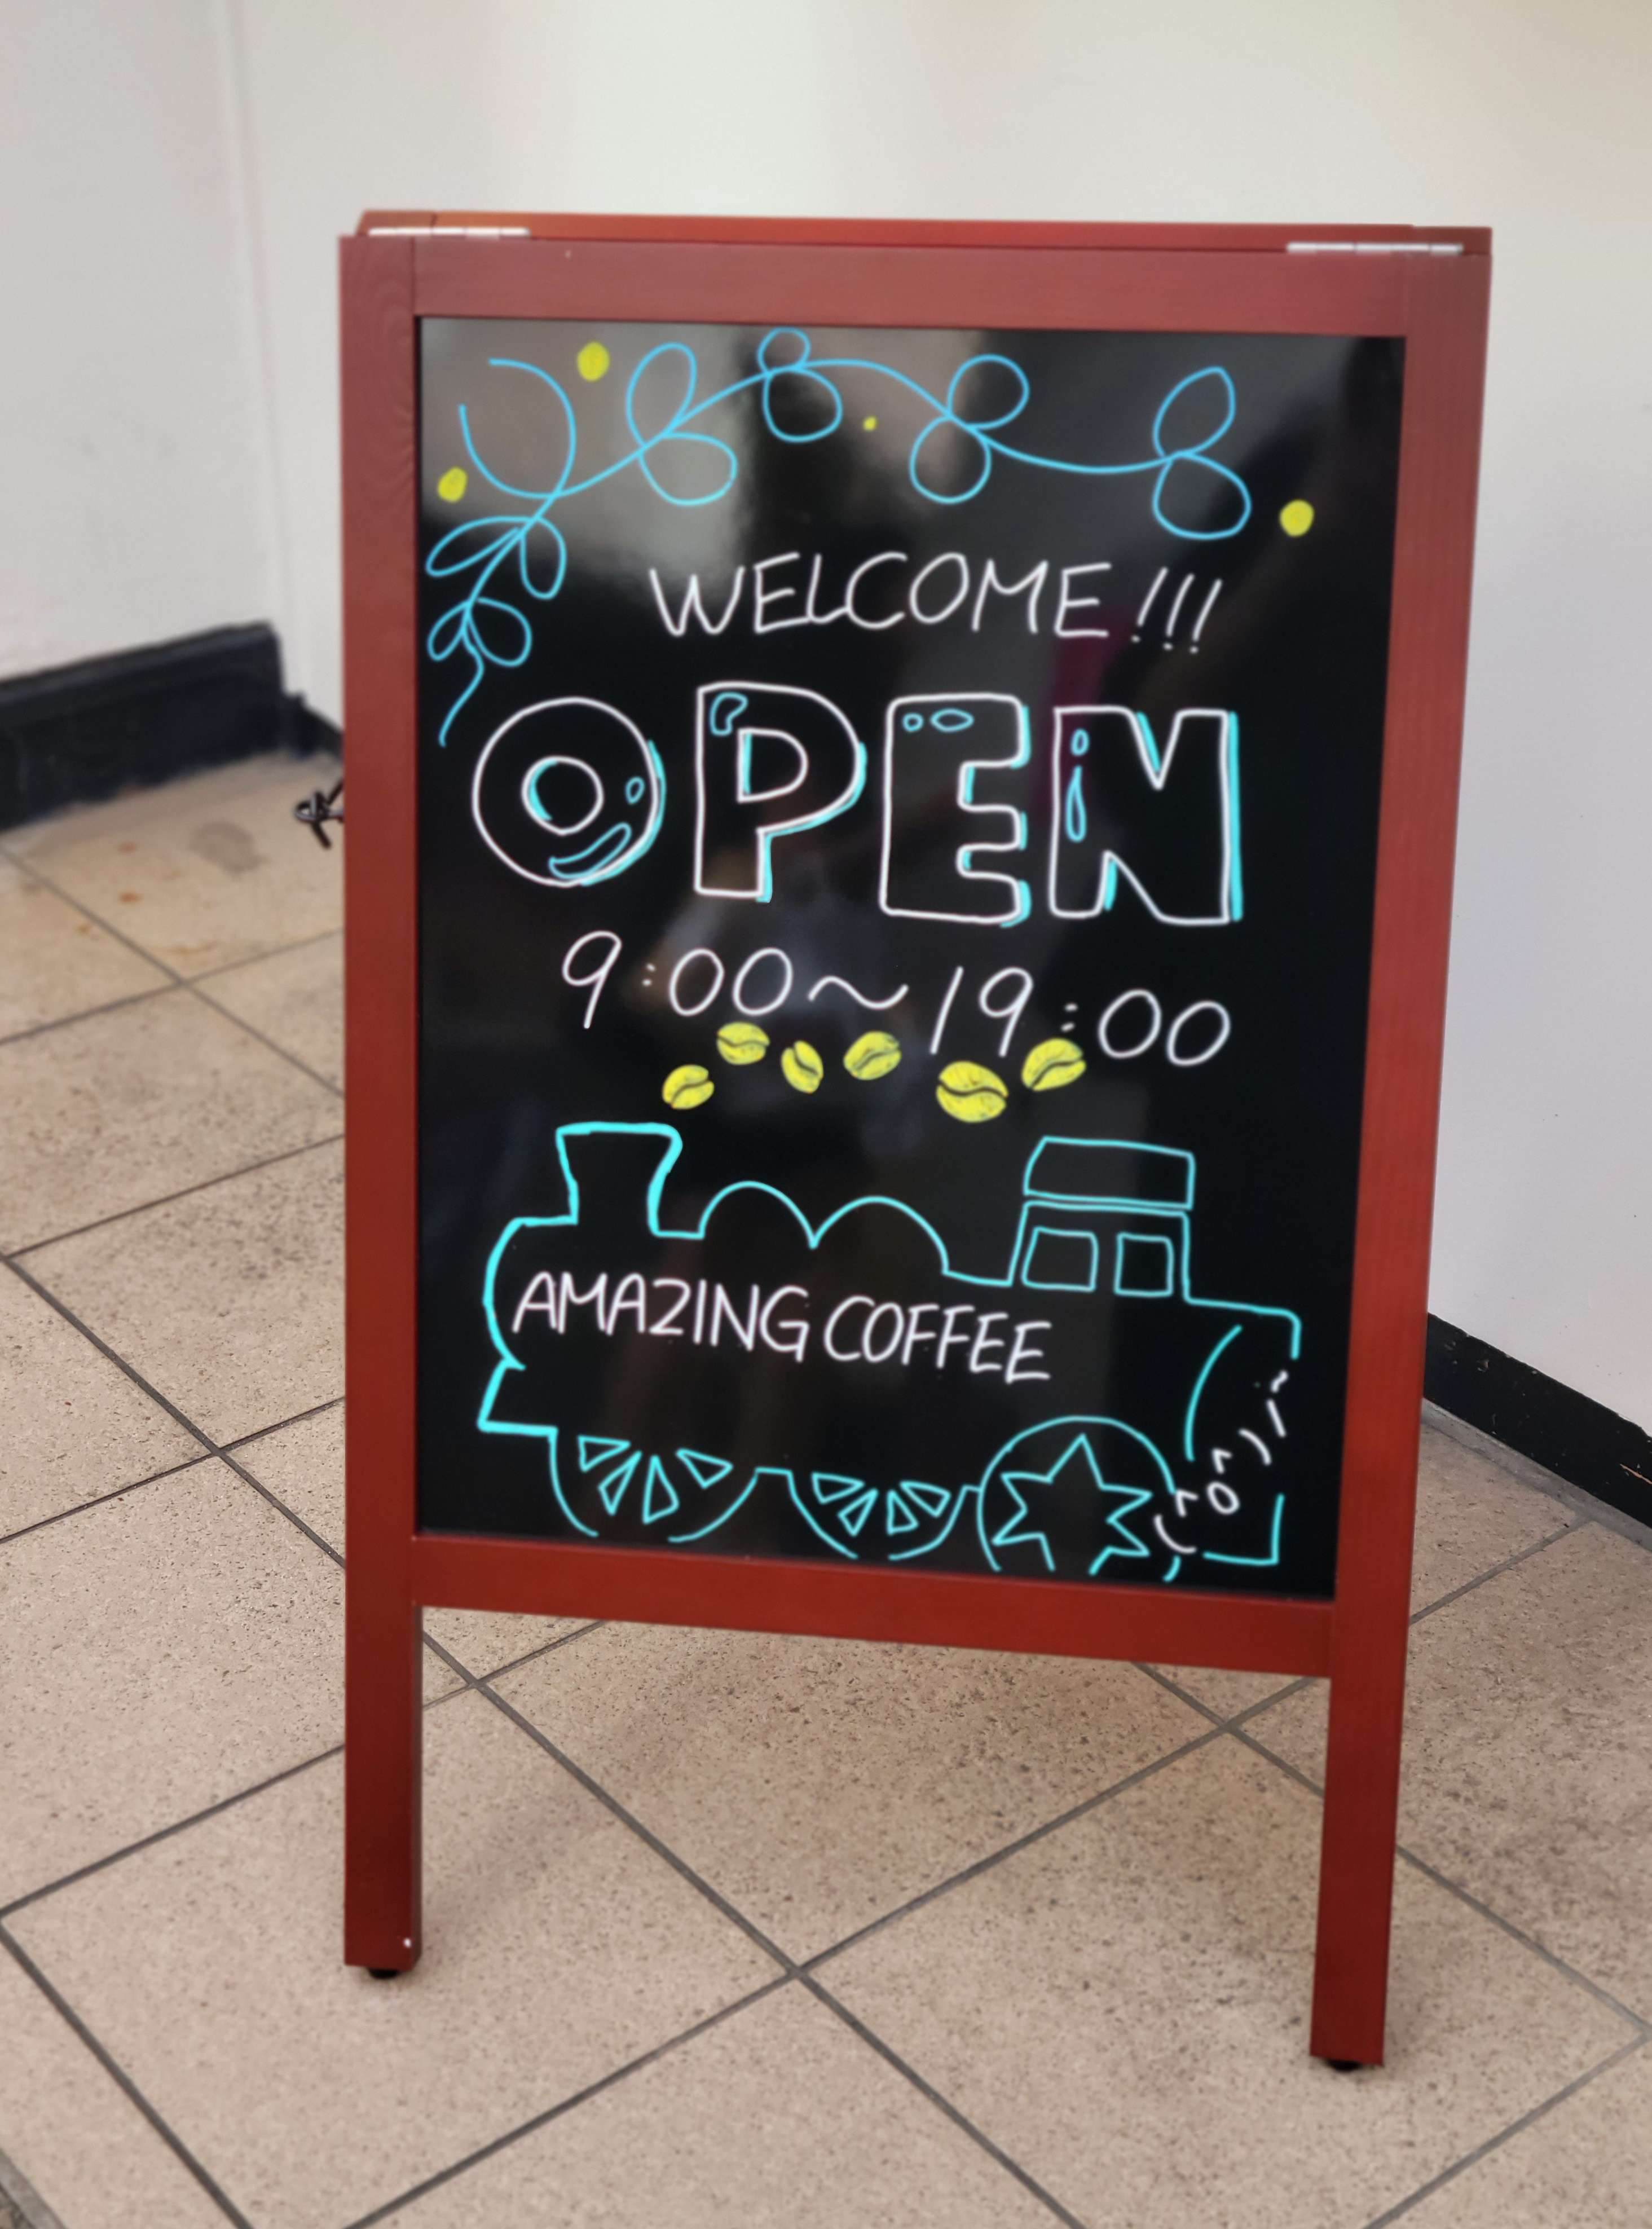 WELCOME!!!
OPEN
9:00~19:00
AMAZING COFFEE